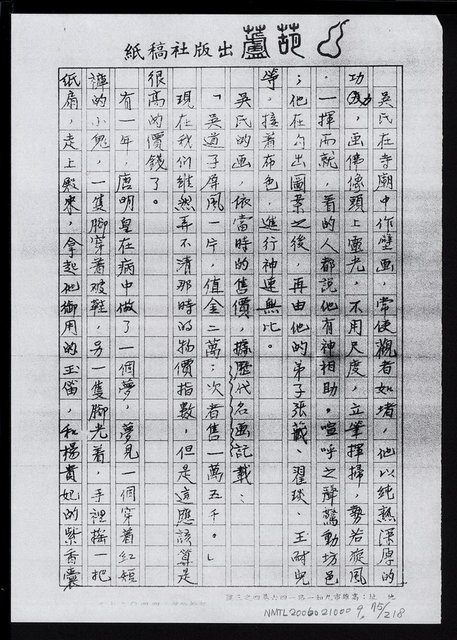 葫蘆出版社稿紙
吳氏在寺廟中作壁画，常使觀者如堵，他以純熟深厚的
功力，画佛像頭上靈光，不用尺度，立筆揮掃，勢若旋風
，一揮而就，看的人都說他有神相助。喧呼之聲驚動坊邑
；他在勾出圖案之後，再由他的弟子張藏、翟琰、王耐兒
等，接着布色，進行神速無比。
吳氏的画，依當時的售價，據歷代名画記載：
「吳道子屏風一片，值金二萬；次者售一萬五千。」
現在我们雖然弄不清那時的物價指數，但是這應該算是
很高的價錢了。
有一年，唐明皇在病中做了一個夢，夢見一個穿着紅短
褲的小鬼，一隻腳穿着破鞋，另一隻腳光着，手裡搖一把
纸扇，走上殿來，拿起他御用的玉笛，和楊貴妃的紫香囊
NMTL20060021000 9 75/218